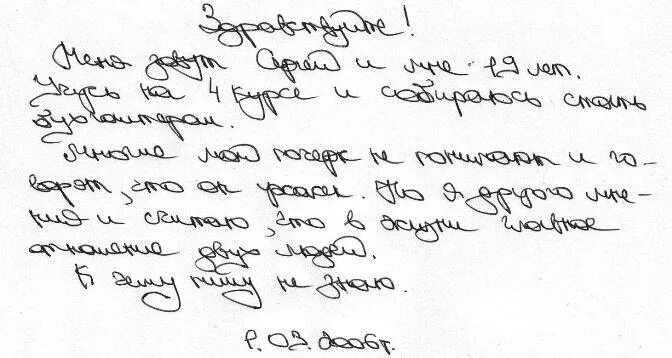 Здравствуйте!
Меня зовут Сергей и мне 19 лет.
Учусь на 4 курсе и собираюсь стать
бухгалтером.
Многие мой почерк не понимают и го-
ворят, что он ужасен. Но я другого мне-
ния и считаю, что в жизни главное
отношение двух людей.
К чему пишу не знаю.
.03.2006г.